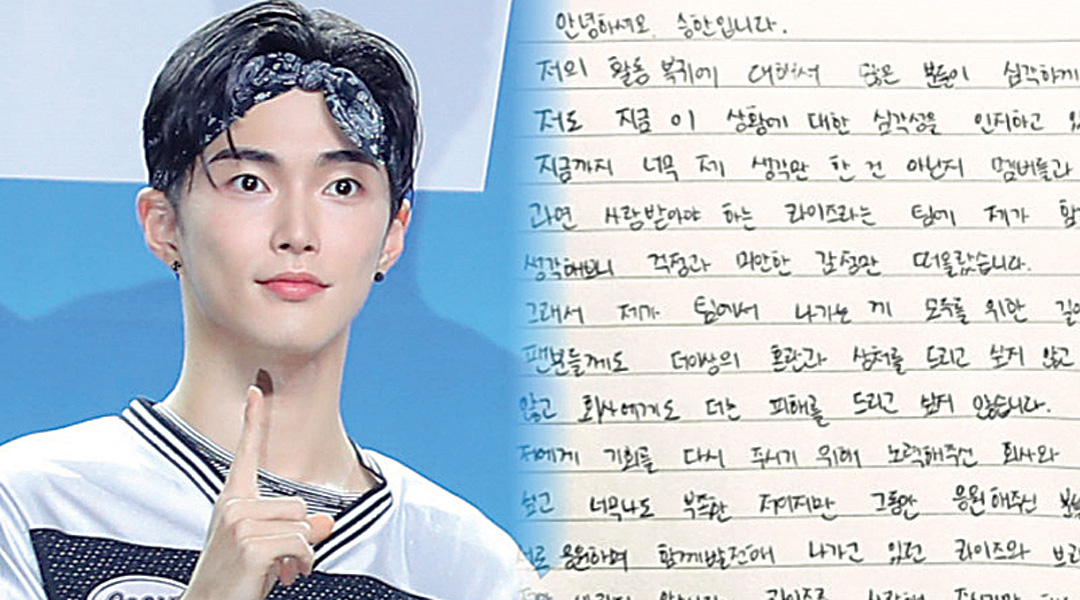 안녕하세요. 승한입니다.
저의 활동 복귀에 대해서 많은 분들이 심각하게
저도 지금 이 상황에 대한 심각성을 인지하고
지금까지 너무 제 생각만 한 건 아닌지 멤버들과
과연 사랑받아야 하는 라이즈라는 팀에 제가
생각해보니 걱정과 미안한 감정만 떠올랐습니다.
그래서 제가 팀에서 나가는 게 모두를 위한
팬분들께도 더이상의 혼란과 상처를 드리고 싶지 않고
않고 회사에게도 더는 피해를 드리고 싶지 않습니다.
저에게 기회를 다시 주시기 위해 노력해주신 회사와
싶고 너무나도 부족한 저이지만 그동안 응원해주신
서로 응원하며 함께발전해 나가고 있던 라이즈와
라이즈